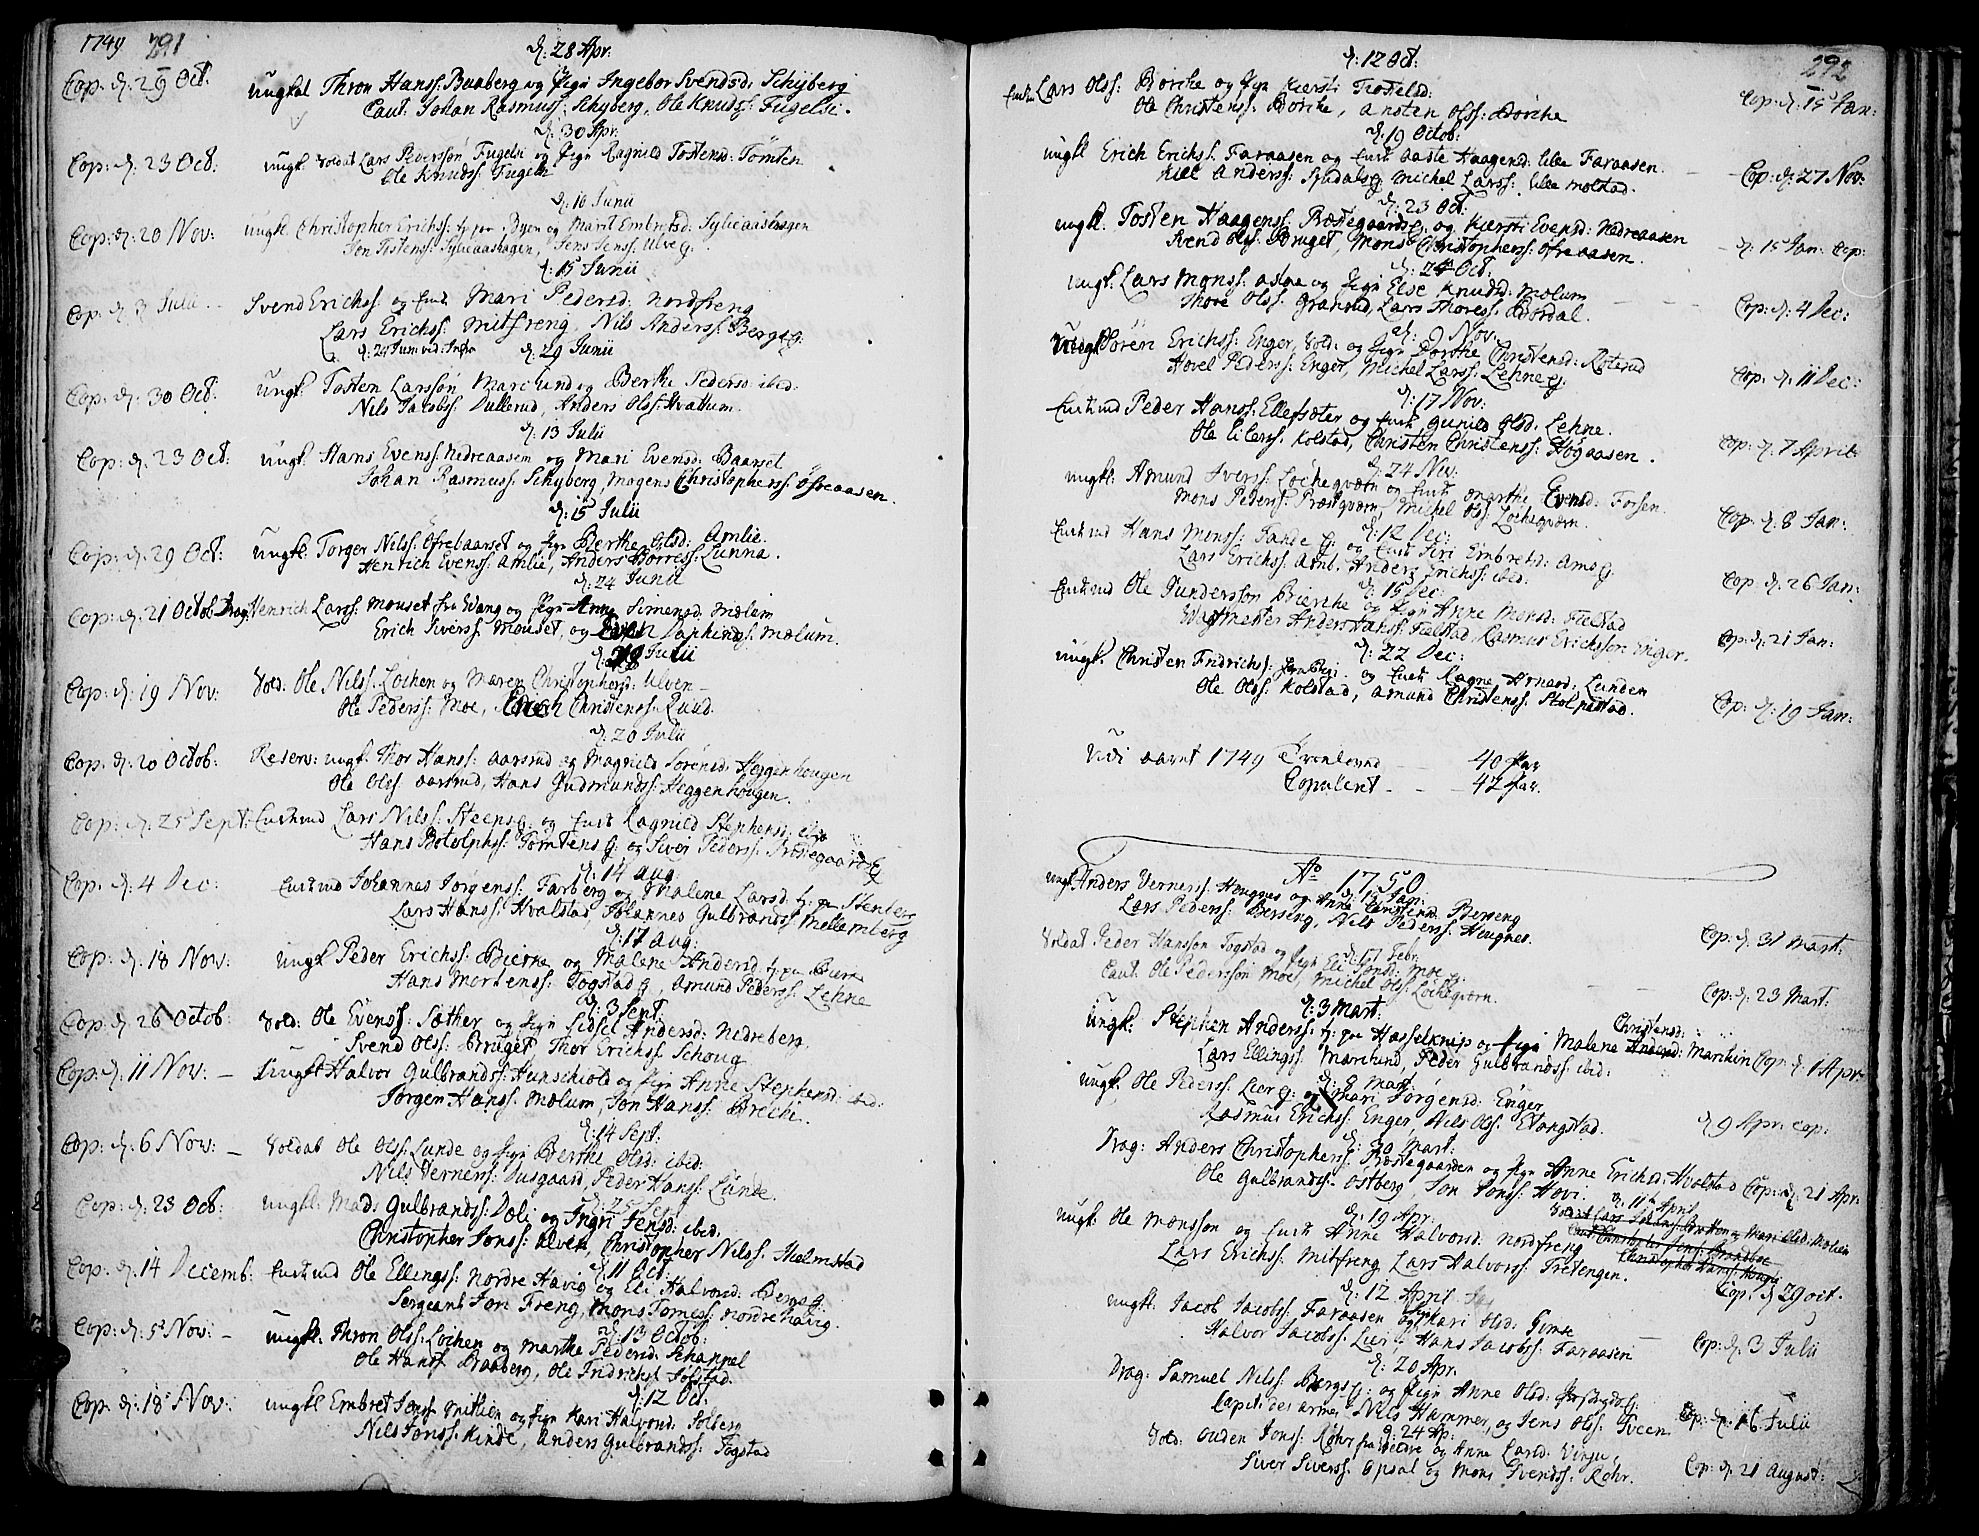 1749 291
d: 28 Apr:
Cop: d: 29 Oct: ungkal Thron Hanss: Baaberg og Pige Ingebor Svendsd: Schyberg
Caut: Johan Rasmuss: Schyberg, Ole Knuds: Fugelsi.
d: 30 Apr:
Cop: d: 23 Oct: ungk: Soldat Lars Pederssön Fugelsi og Pige Ragnild Tostensd: Tömten
Ole Knudss: Fugelsi
d: 10 Junii
Cop: d: 20 Nov: ungkl. Christopher Erichss: og Marit Embretsd: Sylieaashagen
Tostenss: Sylieaashagen, Jens Jenss: Ulve g:
d: 15 Junii
Cop: d: 3 Julii Svend Erichss: og Enk: Mari Pedersd: Nordstreng
Lars Erichss: Mitstreng, Nils Anderss: Berg g:
d: 29 Junii
Cop: d: 30 Oct: ungk: Tosten Larssön Marchund og Berthe Pedersd: ibid:
Nils Jacobss: Dullerud, Anders Olss: Hvattum.
d: 13 Julii
Cop: d: 23 Oct: ungk: Hans Evenss: Nedreaasen og Mari Evensd: Baarset
Johan Rasmuss: Schyberg, Mogens Christopherss: Öfreaasen.
d: 15 Julii
Cop: d: 29 Oct: ungk: Torger Nilss: Öfrebaarset og Pige Berthe Olsd: Amlie.
Henrich Evenss: Amlie, Anders Borress: Lunna.
d: 24 Junii
Cop: d: 21 Octob: Drag: Henrich Larss: Mouset fra Wang og Pige Anne Simensd: Mælum
Erich Iverss: Mouset, og Daphinds: Mælum.
d: 28 Julii
Cop: d: 19 Nov: Sold: Ole Nilss: Lochen og Maren Christophersd: Ulven
Ole Pederss: Moe, Erich Christenss: Ruud.
d: 20 Julii
Cop: d: 20 Octob: Reserv: ungk: Thor Hanss: Aarsrud og Magnild Sörensd: Heggenhougen
Ole Olss: Aarsrud, Hans Gudmundss: Heggenhougen.
Cop: d: 25 Sept: Enkmd Lars Nilss: Steens g: og Enk: Ragnild Stephensd: ibid
Hans Botolphss: Tömtens g: og Siver Pederss: Præstegaards g:
d: 14 aug:
Cop: d: 4 Dec: Enkmd Johannes Jörgenss: Farberg og Malene Larsd: t: paa Stenberg
Lars Hanss: Hvalstad, Johannes Gulbrands: Mellemberg
d: 17 aug:
Cop: d: 18 Nov: ungk Peder Erichss: Bierke og Malene Andersd: t: paa Bierke
Hans Mortenss: Togstad g:, Amund Pederss: Lehne
d: 3 Sept:
Cop: d: 26 Octob: Sold: Ole Evenss: Sæther og Pige Sidsel Andersd: Nedreberg.
Svend Olss: Bruget, Thor Erichss: Schoug
Cop: d: 11 Nov: – ungk Halvor Gulbrandss: Hunschiold og Pige Anne Stephensd: ibid:
Jörgen Hanss: Mælum, Jon Hanss: Breche.
d: 14 Sept:
Cop: d: 6 Nov: – Soldat Ole Olss: Lunde og Pige Berthe Olsd: ibid:
Nils Verners: Dusgaard, Peder Hanss: Lunde.
d: 25 Sept
Cop: d: 23 Oct: ungk: Mads Gulbrandss: Doli og Ingri Jensd: ibid.
Christopher Jonss: Ulven, Christopher Nilss: Hielmstad
d: 11 Oct:
Cop: d: 14 Decemb: Enkmd Ole Ellingss: Nordre Havig og Eli Halvorsd: Bergs g:
Sergeant Jon Streng, Mons Tomess: Nordre Havig.
d: 13 Octob:
Cop: d: 5 Nov: – ungk: Thron Olss: Lochen og Marthe Pedersd: Schappel
Ole Hanss: Braaberg, Ole Fridrichss: Solstad.
d: 12 Oct.
Cop: d: 18 Nov: ungk Embret Jonss: Mitlien og Pige Kari Halvorsd: Solberg
Nils Jonss: Kinde, Anders Gulbrandss: Togstad
292
d: 12 Oct:
Enkm Lars Olss: Börche og Pige Kiersti Troelsd:
Ole Christenss: Börche, Ansten Olss: Börche Cop: d: 15 Jan:
d: 19 Octob:
ungk Erich Erichss: Faraasen og Enk: Aaste Haagensd: lille Faraasen.
Anderss: Spidals g: Michel Larss: lille Molstad. Cop: d: 27 Nov:
d: 23 Oct:
ungk: Tosten Haagenss: Præstegaards g: og Kiersti Evensd: Nedreaasen
Svend Olss: Bruget, Mons Christopherss: Öfreaasen. d: 15 Jan: Cop:
d: 24 Oct:
ungk: Lars Monss: og Pige Else Knudsd: Mælum
Thore Olss: Granrud, Lars Thoress: Bordal. Cop: d: 4 Dec:
d: 9 Nov:
ungk Sören Erichss: Enger, Sold: og Pige Dorthe Christensd: Röterud
Hovel Pederss: Enger, Michel Larss: Lehne g: Cop: d: 11 Dec:
d: 17 Nov:
Enkmd Peder Hanss: Ellefsæter og Enk: Gunild Olsd: Lehne.
Ole Eilerss: Kolstad, Christen Christenss: Högaasen. Cop: d: 7 April:
d: 24 Nov:
ungk: Amund Iverss: Lochegværn og Enk: Marthe Evensd: Forsen.
Mons Pederss: Præstqværn, Michel Olss: Lochegværn. Cop: d: 8 Jan:
d: 12 Dec:
Enkmd Hans Monss: Fande g: og Enk: Siri Embretsd: Amo g:
Lars Erichss: Aml: Anders Erichss: ibid: Cop: d: 26 Jan:
d: 15 Dec:
Enkmd Ole Gunderssön Bierche og Pige Anne Monsd: Fælstad
Wagtmester Anders Hanss: Fælstad, Rasmus Erichssön Enger. Cop: d: 21 Jan:
d: 22 Dec:
ungk: Christen Fridrichss: og Enk: Ragne Arnesd: Lunden
Ole Olss: Kolstad, Amund Christenss: Stolpestad. Cop: d: 19 Jan:
Udi aaret 1749 Trolovet – 40 Par
Copuleret – – 42 Par.
Ao 1750
d: 13 Jan:
ungk: Anders Vernerss: Hougnes og Anne Christensd: Berseng
Lars Pederss: Berseng, Nils Pederss: Hougnes. Cop: d: 31 Mart:
d: 17 Febr:
Soldat Peder Hanssön Togstad og Pige Eli Jonsd: Moe
Caut: Ole Pederssön Moe, Michel Olss: Lochegværn. Cop: d: 23 Mart:
d: 3 Mart:
ungk: Stephen Anderss: t: paa Hasselknip og Pige Malene Andersd: Christensd: Marchien Cop: d: 1 Apr:
Lars Ellingss: Marchund, Peder Gulbrandss: ibid:
d: 8 Mart:
ungk: Ole Pederss: Lier g: og Mari Jörgensd: Enger
Rasmus Erichss: Enger, Nils Olss: Stangstad. d: 9 Apr: Cop:
d: 30 Mart:
Drag: Anders Christopherss: Præstegaarden og Pige Anne Erichsd: Hvalstad Cop: d: 21 Apr:
Ole Gulbrandss: Östberg, Jon Jonss: Hovi.
d: 11 April
d: 19 Apr:
ungk: Ole Monssön og Enk: Anne Halvorsd: Nordstreng
Lars Erichss: Mitstreng, Lars Halvorss: Tretengen. Cop: d: 29 oct.
d: 12 April
ungk: Jacob Jacobss: Faraasen og Kari Olsd: Gimse
Halvor Jacobss: Lier, Hans Jacobss: Faraasen Cop: d: 3 Julii
d: 20 Apr:
Drag: Samuel Nilss: Bergs g: og Pige Anne Olsd:
Capit: des armes Nils Hammer, og Jens Olss: Tveen Cop: d: 16 Julii
d: 24 Ap:
Sold: Ouden Jonss: Röhr fra Wedre og Anne Larsd: Vinju,
Siver Siverss: Opsal og Mons Svendss: Röhr. Cop: d: 21 August: